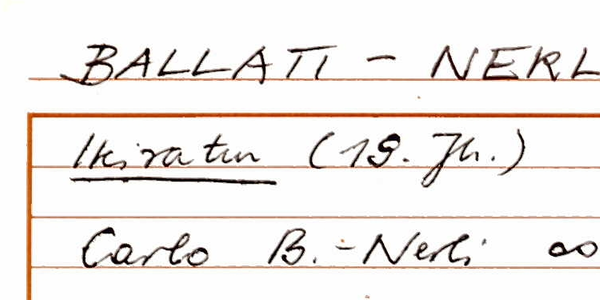 BALLATI - NERL
(19. Jh.)
Carlo B.-Nerli ∞